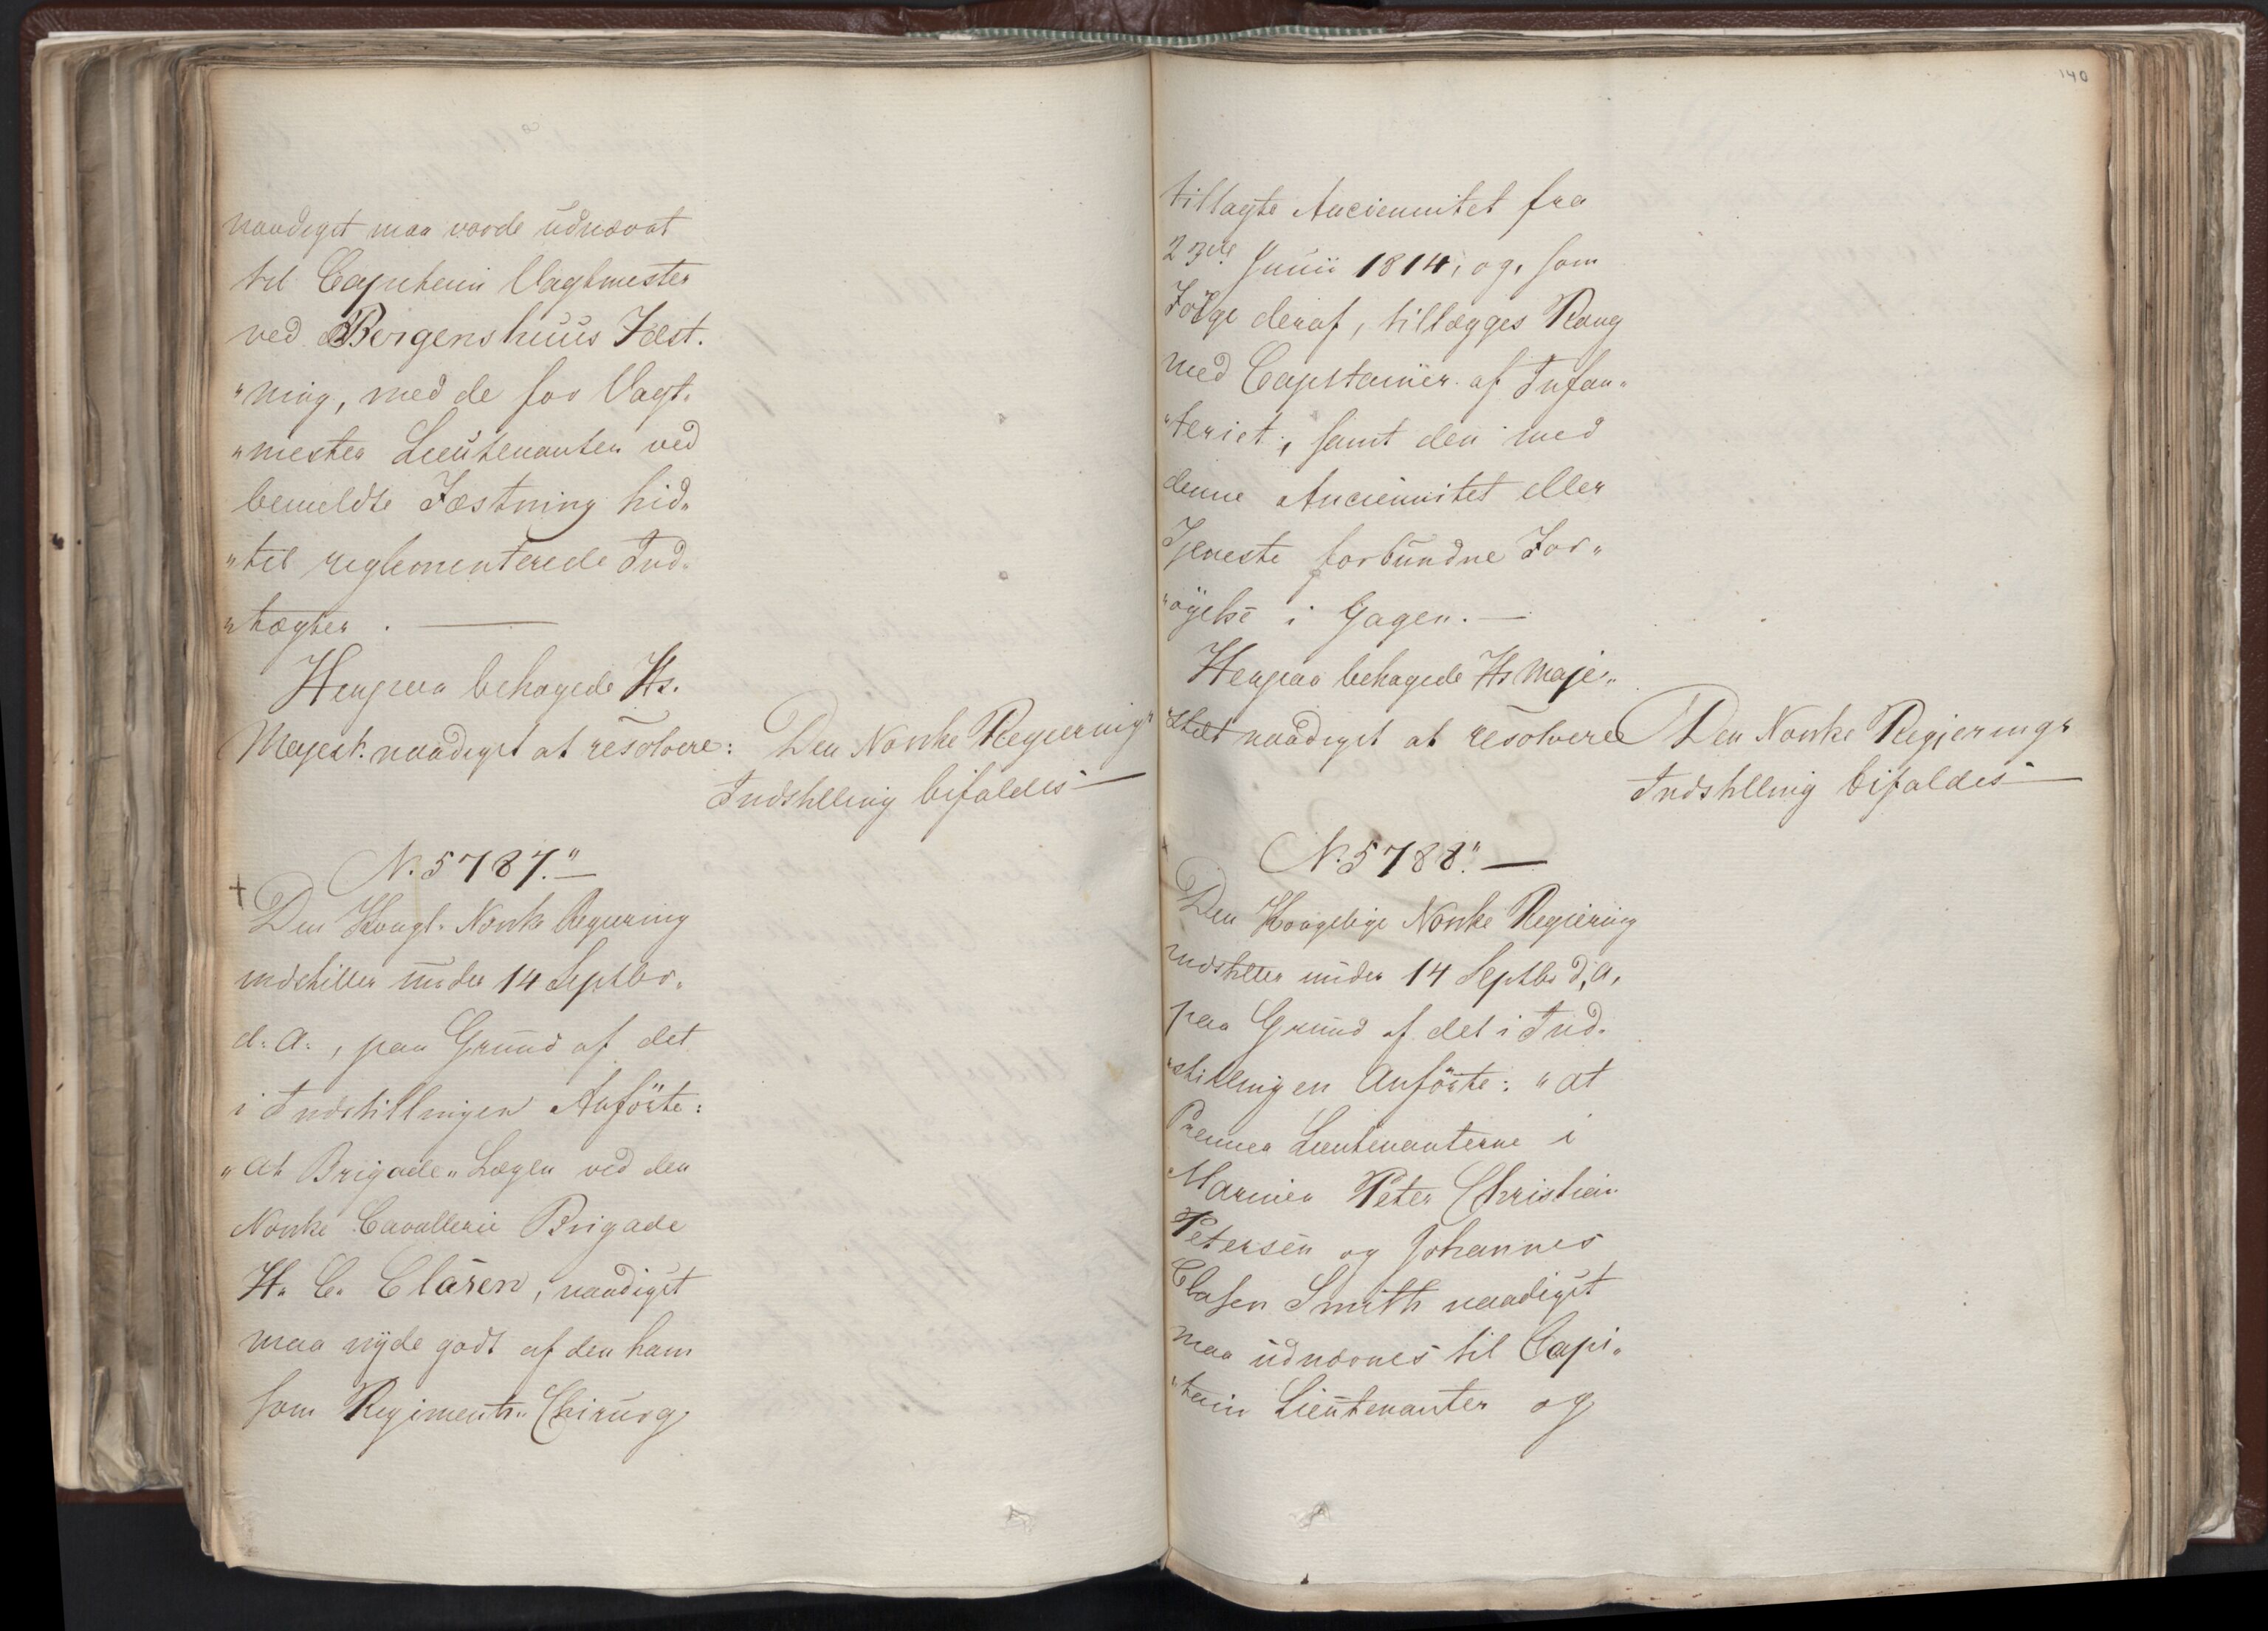 naadigst maa vorde udnævnt
til Capitein Vagtmester
ved Bergenshuus Fæst-
"ning, med de for Vagt-
"mester Lieutenanten ved
bemeldte Fæstning hid-
"til reglementerede Ind-
"tægter. —
Herpaa behagede Hs.
Majest. naadigst at resolvere: Den Norske Regjerings
Indstilling bifaldes —
N. 5787." —
+ Den Kongl. Norske Regjering
indstiller under 14 Septbr.
d: A:, paa Grund af det
i Indstillingen Anförte:
"at Brigade-Lægen ved den
Norske Cavallerie Brigade
H. C. Clasen, naadigst
maa nyde godt af den ham
som Regiments-Chirurg
140
tillagte Anciennitet fra
Junii 1814, og, som
Fölge deraf, tillægges Rang
med Capitainer af Infan-
"teriet, samt den med
denne Anciennitet eller
Tjeneste forbundne For-
"öyelse i Gagen. —
Herpaa behagede Hs Maje-
"stæt naadigst at resolvere Den Norske Regjerings
Indstilling bifaldes —
+ N. 5788." —
Den Kongelige Norske Regjering
indstiller under 14 Septbr d. A.
paa Grund af det i Ind-
"stillingen Anförte: "at
Premier Lieutenanterne i
Marinen Peter Christian
Petersen og Johannes
Clasen Smith naadigst
maa udnævnes til Capi-
"tain Lieutenanter og